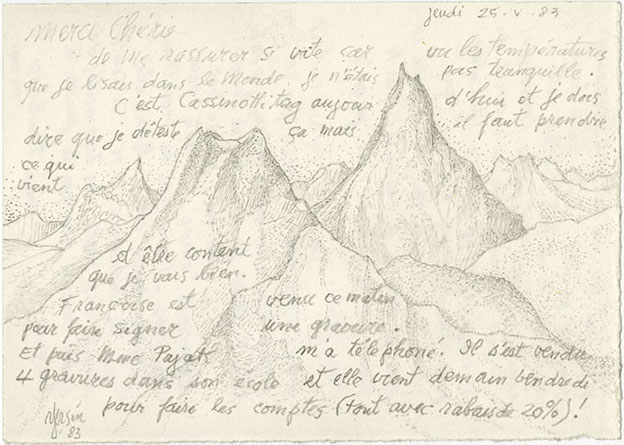 jeudi 25.V.83
Merci Chérie
de me rassurer si vite car vu les températures
que je lisais dans le Monde, je n'étais pas tranquille.
C'est Cassinottitag aujour d'hui et je dois
dire que je déteste ça mais il faut prendre
ce qui
vient
et être content
que je vais bien.
Françoise est venu ce matin
pour faire signer une gravure.
Et puis Mme Pajat m'a téléphoné. Il s'est vendu
4 gravures dans son école et elle vient demain vendredi
pour faire les comptes (tout avec rabais de 20%)!
83